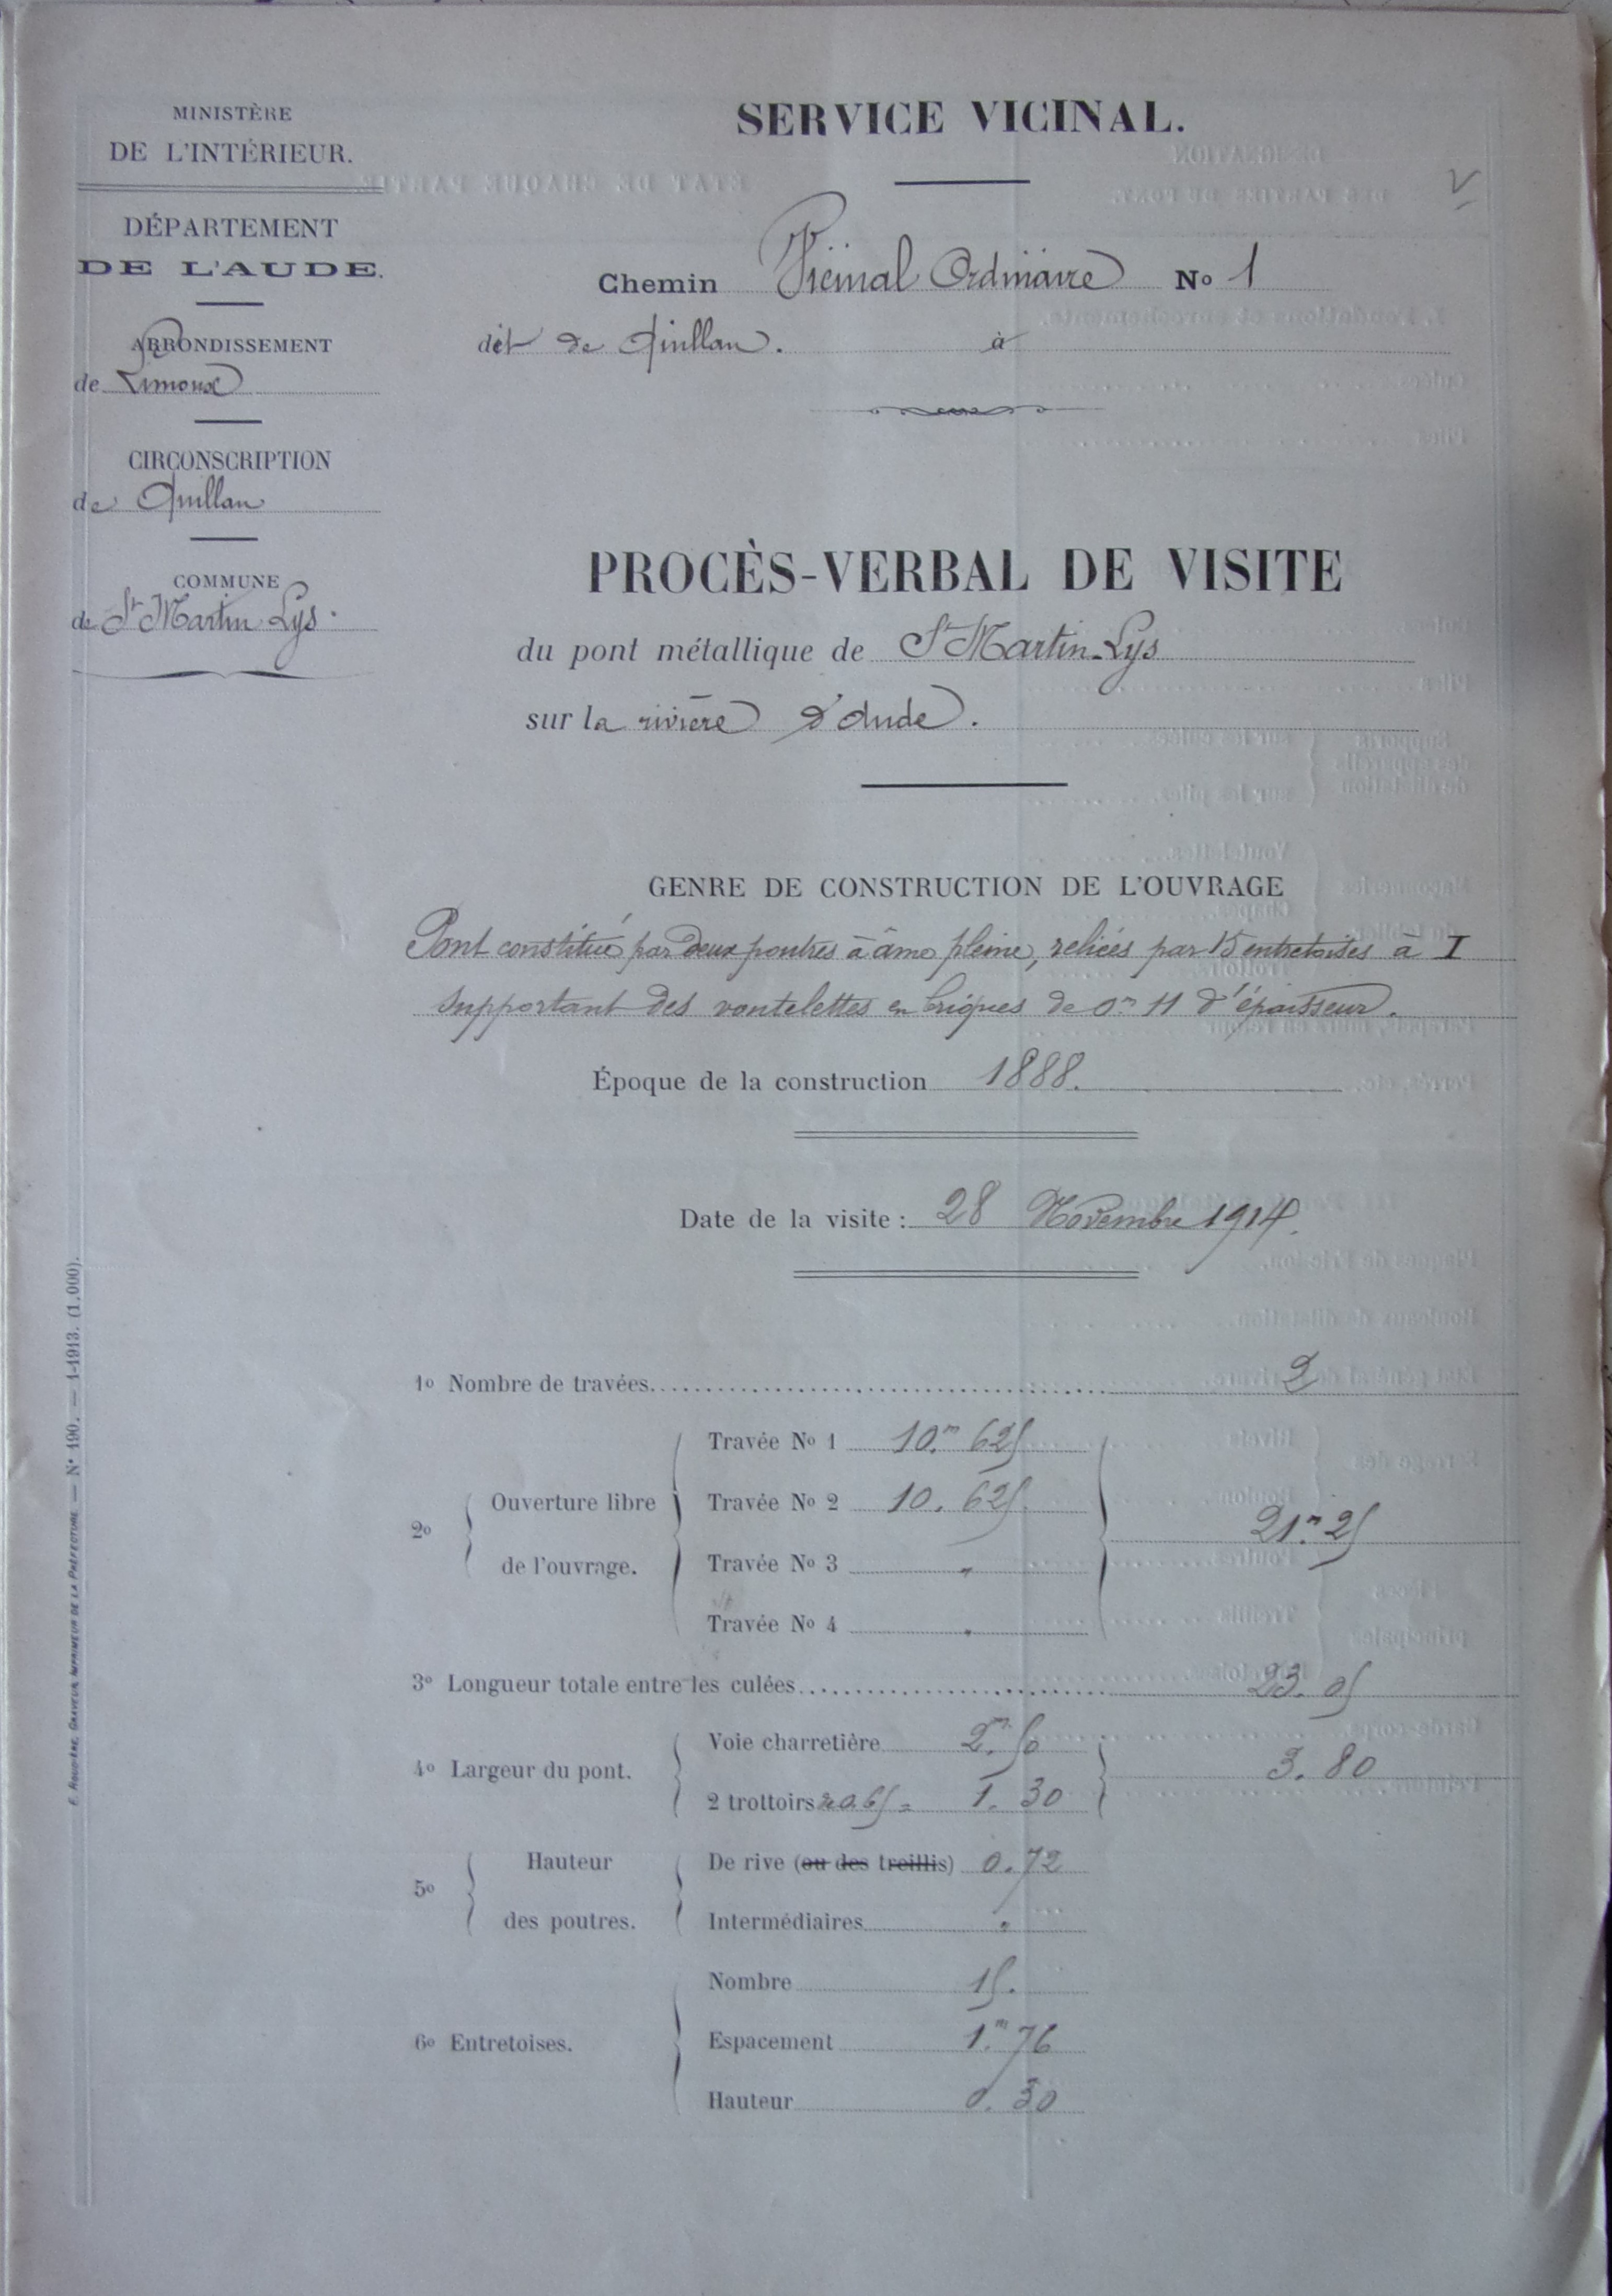 MINISTÈRE
DE L'INTÉRIEUR.
DÉPARTEMENT
DE L'AUDE.
ARRONDISSEMENT
de Limoux
CIRCONSCRIPTION
de Quillan
COMMUNE
de St Martin Lys.
SERVICE VICINAL.
V
Chemin Vicinal Ordinaire No 1
dit de Quillan. à
PROCÈS-VERBAL DE VISITE
du pont métallique de St Martin-Lys
sur la rivière d'Aude.
GENRE DE CONSTRUCTION DE L'OUVRAGE
Pont constitué par deux poutres à âme pleine, reliées par 15 entretoises à I
supportant des voutelettes en briques de 0m 11 d'épaisseur.
Époque de la construction 1888.
Date de la visite : 28 Novembre 1914.
1o Nombre de travées. 2
2o Ouverture libre de l'ouvrage.
Travée No 1 10.m 625
Travée No 2 10. 625
Travée No 3 "
Travée No 4 "
21.m 25
3o Longueur totale entre les culées 23. 05
4o Largeur du pont.
Voie charretière 2.m 50
2 trottoirs de 0.65 = 1. 30
3. 80
5o Hauteur des poutres.
De rive (ou des treillis) 0.72
Intermédiaires "
6o Entretoises.
Nombre 15.
Espacement 1.m 76
Hauteur 0. 30
GRAVEUR, IMPRIMEUR DE LA PRÉFECTURE — No 190. — 1-1913. (1.000).